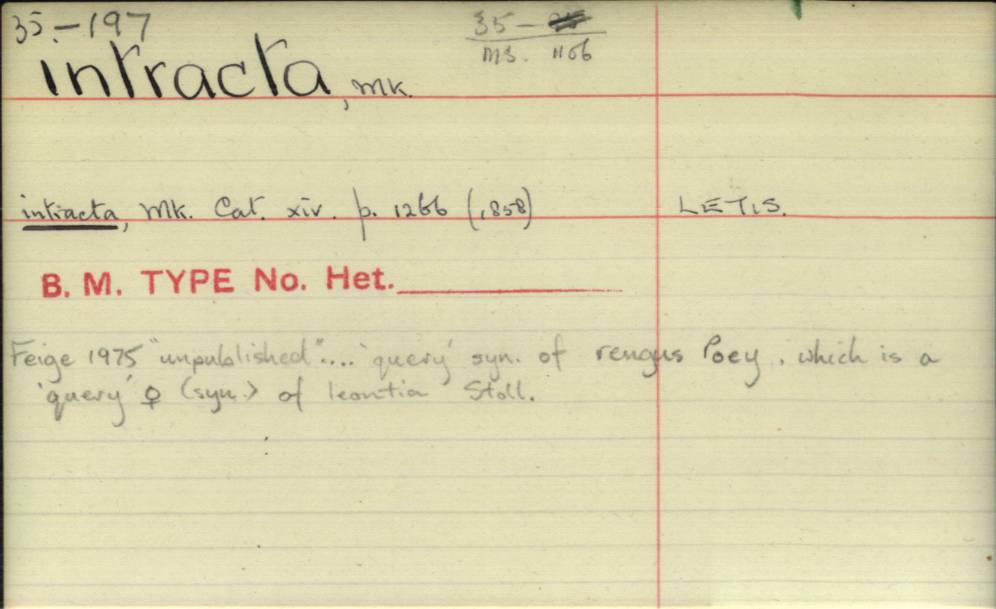 35.-197
35-
MS. 1106
intracta, Mk.
intracta, Mk. Cat. xiv. p. 1266 (,858) LETIS.
B. M. TYPE No. Het.
Feige 1975 "unpublished".... 'query' syn. of rengus Poey. which is a
'query' ♀ (syn.) of leontia Stoll.